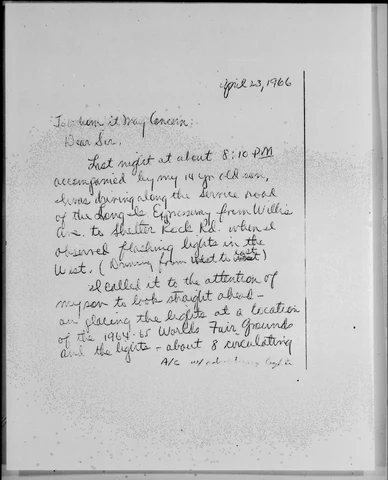 April 23, 1966
To whom it May Concern:
Dear Sir.
Last night at about 8:10 PM
accompanied by my 14 yr old son,
I was driving along the Service road
of the Long Is Expressway from Willis
Ave. to Shelter Rock Rd. when I
observed flashing lights in the
West. (Driving from West to East)
I called it to the attention of
my son to look straight ahead -
on placing the lights at a location
of the 1964-65 Worlds Fair Grounds
and the lights - about 8 circulating
A/C